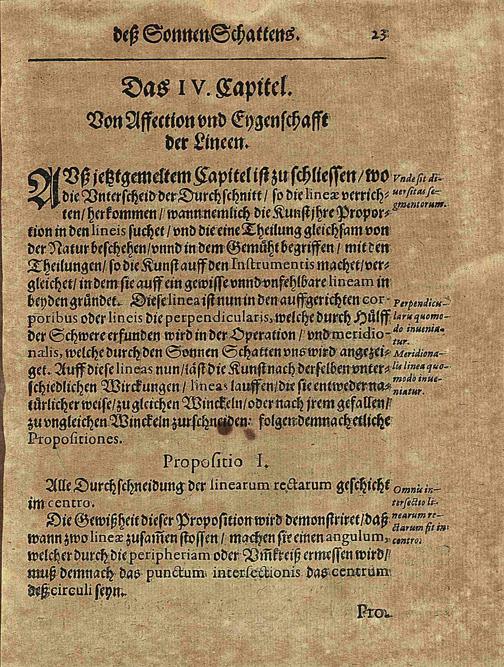 deß SonnenSchattens. 23
Das IV. Capitel.
Von Affection vnd Eygenschafft
der Lineen.
AVß jetztgemeltem Capitel ist zu schliessen / wo
die Vnterscheid der Durchschnitt / so die lineæ verrich-
ten / herkommen / wann nemlich die Kunst jhre Propor-
tion in den lineis suchet / vnd die eine Theilung gleichsam von
der Natur beschehen / vnnd in dem Gemüht begriffen / mit den
Theilungen / so die Kunst auff den Instrumentis machet / ver-
gleichet / in dem sie auff ein gewisse vnnd vnfehlbare lineam in
beyden gründet. Diese linea ist nun in den auffgerichten cor-
poribus oder lineis die perpendicularis, welche durch Hülff
der Schwere erfunden wird in der Operation / vnd meridio-
nalis, welche durch den Sonnen Schatten vns wird angezei-
get. Auff diese lineas nun / läst die Kunst nach derselben vnter-
schiedlichen Wirckungen / lineas lauffen / die sie entweder na-
türlicher weise / zu gleichen Winckeln / oder nach jrem gefallen /
zu vngleichen Winckeln zurschneiden: folgen demnach etliche
Propositiones.
Vnde sit di-
uersitas se-
gmentorum.
Perpendicu-
laris quomo-
do inuenia-
tur.
Meridiona-
lis linea quo-
modo inue-
niatur.
Propositio I.
Alle Durchschneidung der linearum rectarum geschicht
im centro.
Die Gewißheit dieser Proposition wird demonstriret / daß
wann zwo lineæ zusam̃en stossen / machen sie einen angulum,
welcher durch die peripheriam oder Vmkreiß ermessen wird /
muß demnach das punctum intersectionis das centrum
deß circuli seyn.
Omnis in-
tersectio li-
nearum re-
ctarum fit in
centro.
Pro-